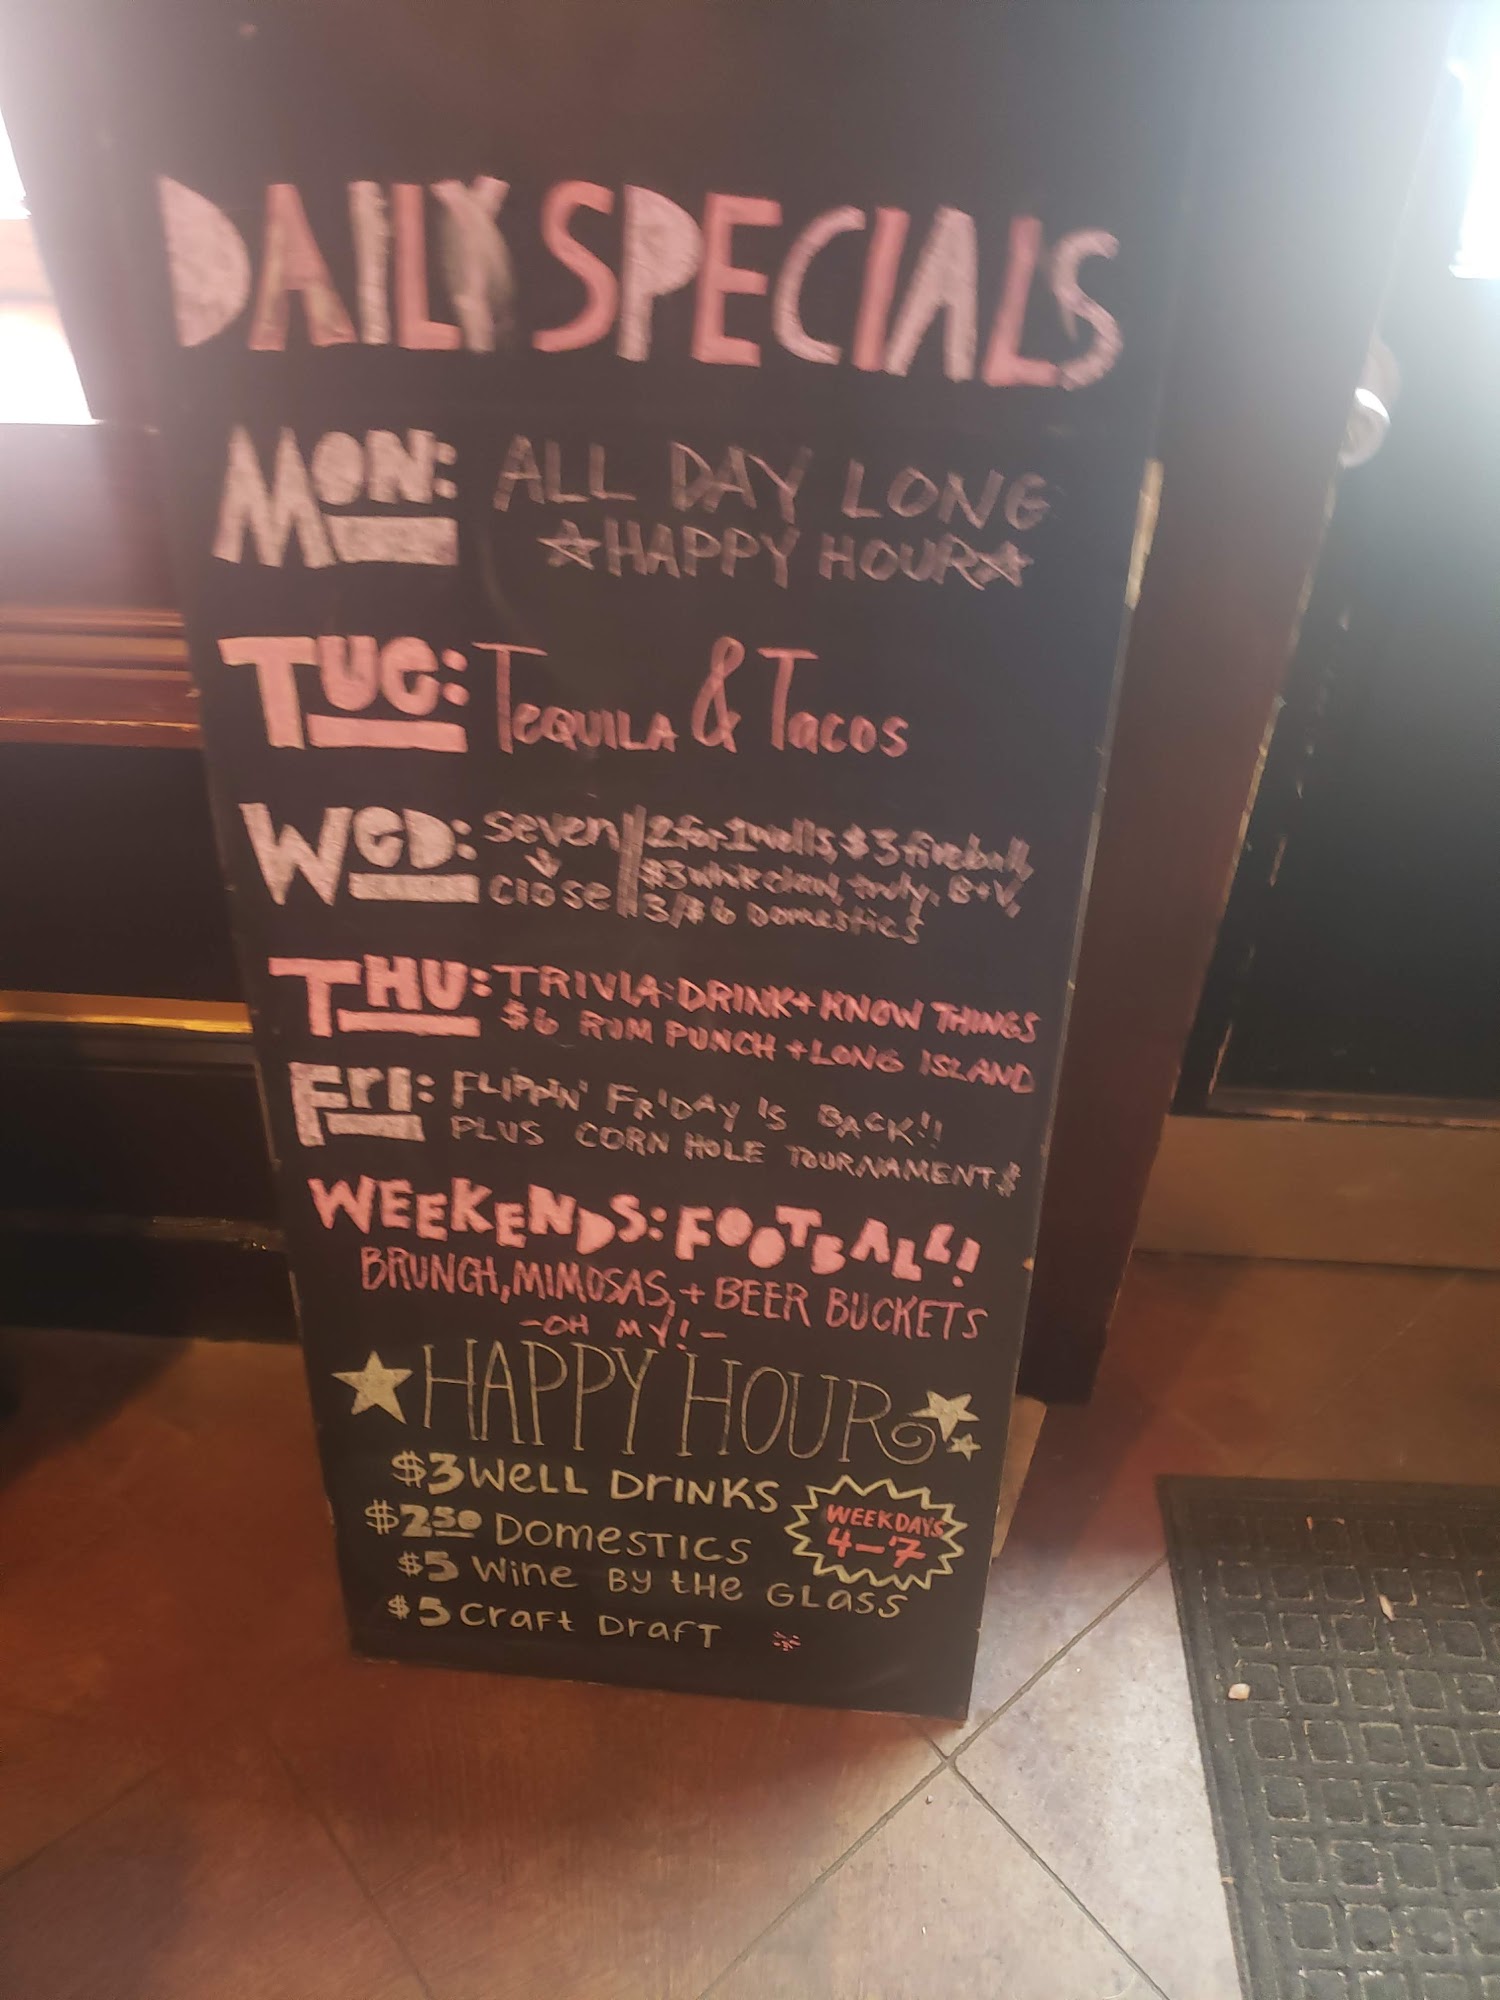 DAILY SPECIALS
MON: ALL DAY LONG
☆HAPPY HOUR☆
TUE: TEQUILA & TACOS
WED: seven || 2 for 1 wells, $3 fireball,
↓ $3 white claw, truly, B+V,
close || 3/$6 Domestics
THU: TRIVIA: DRINK + KNOW THINGS
$6 RUM PUNCH + LONG ISLAND
FRI: FLIPPIN' FRIDAY IS BACK!!
PLUS CORN HOLE TOURNAMENT$
WEEKENDS: FOOTBALL!
BRUNCH, MIMOSAS, + BEER BUCKETS
-OH MY!-
HAPPY HOUR
$3 WELL DRINKS
$2.50 DOMESTICS
WEEKDAYS
4-7
$5 WINE BY THE GLASS
$5 CRAFT DRAFT